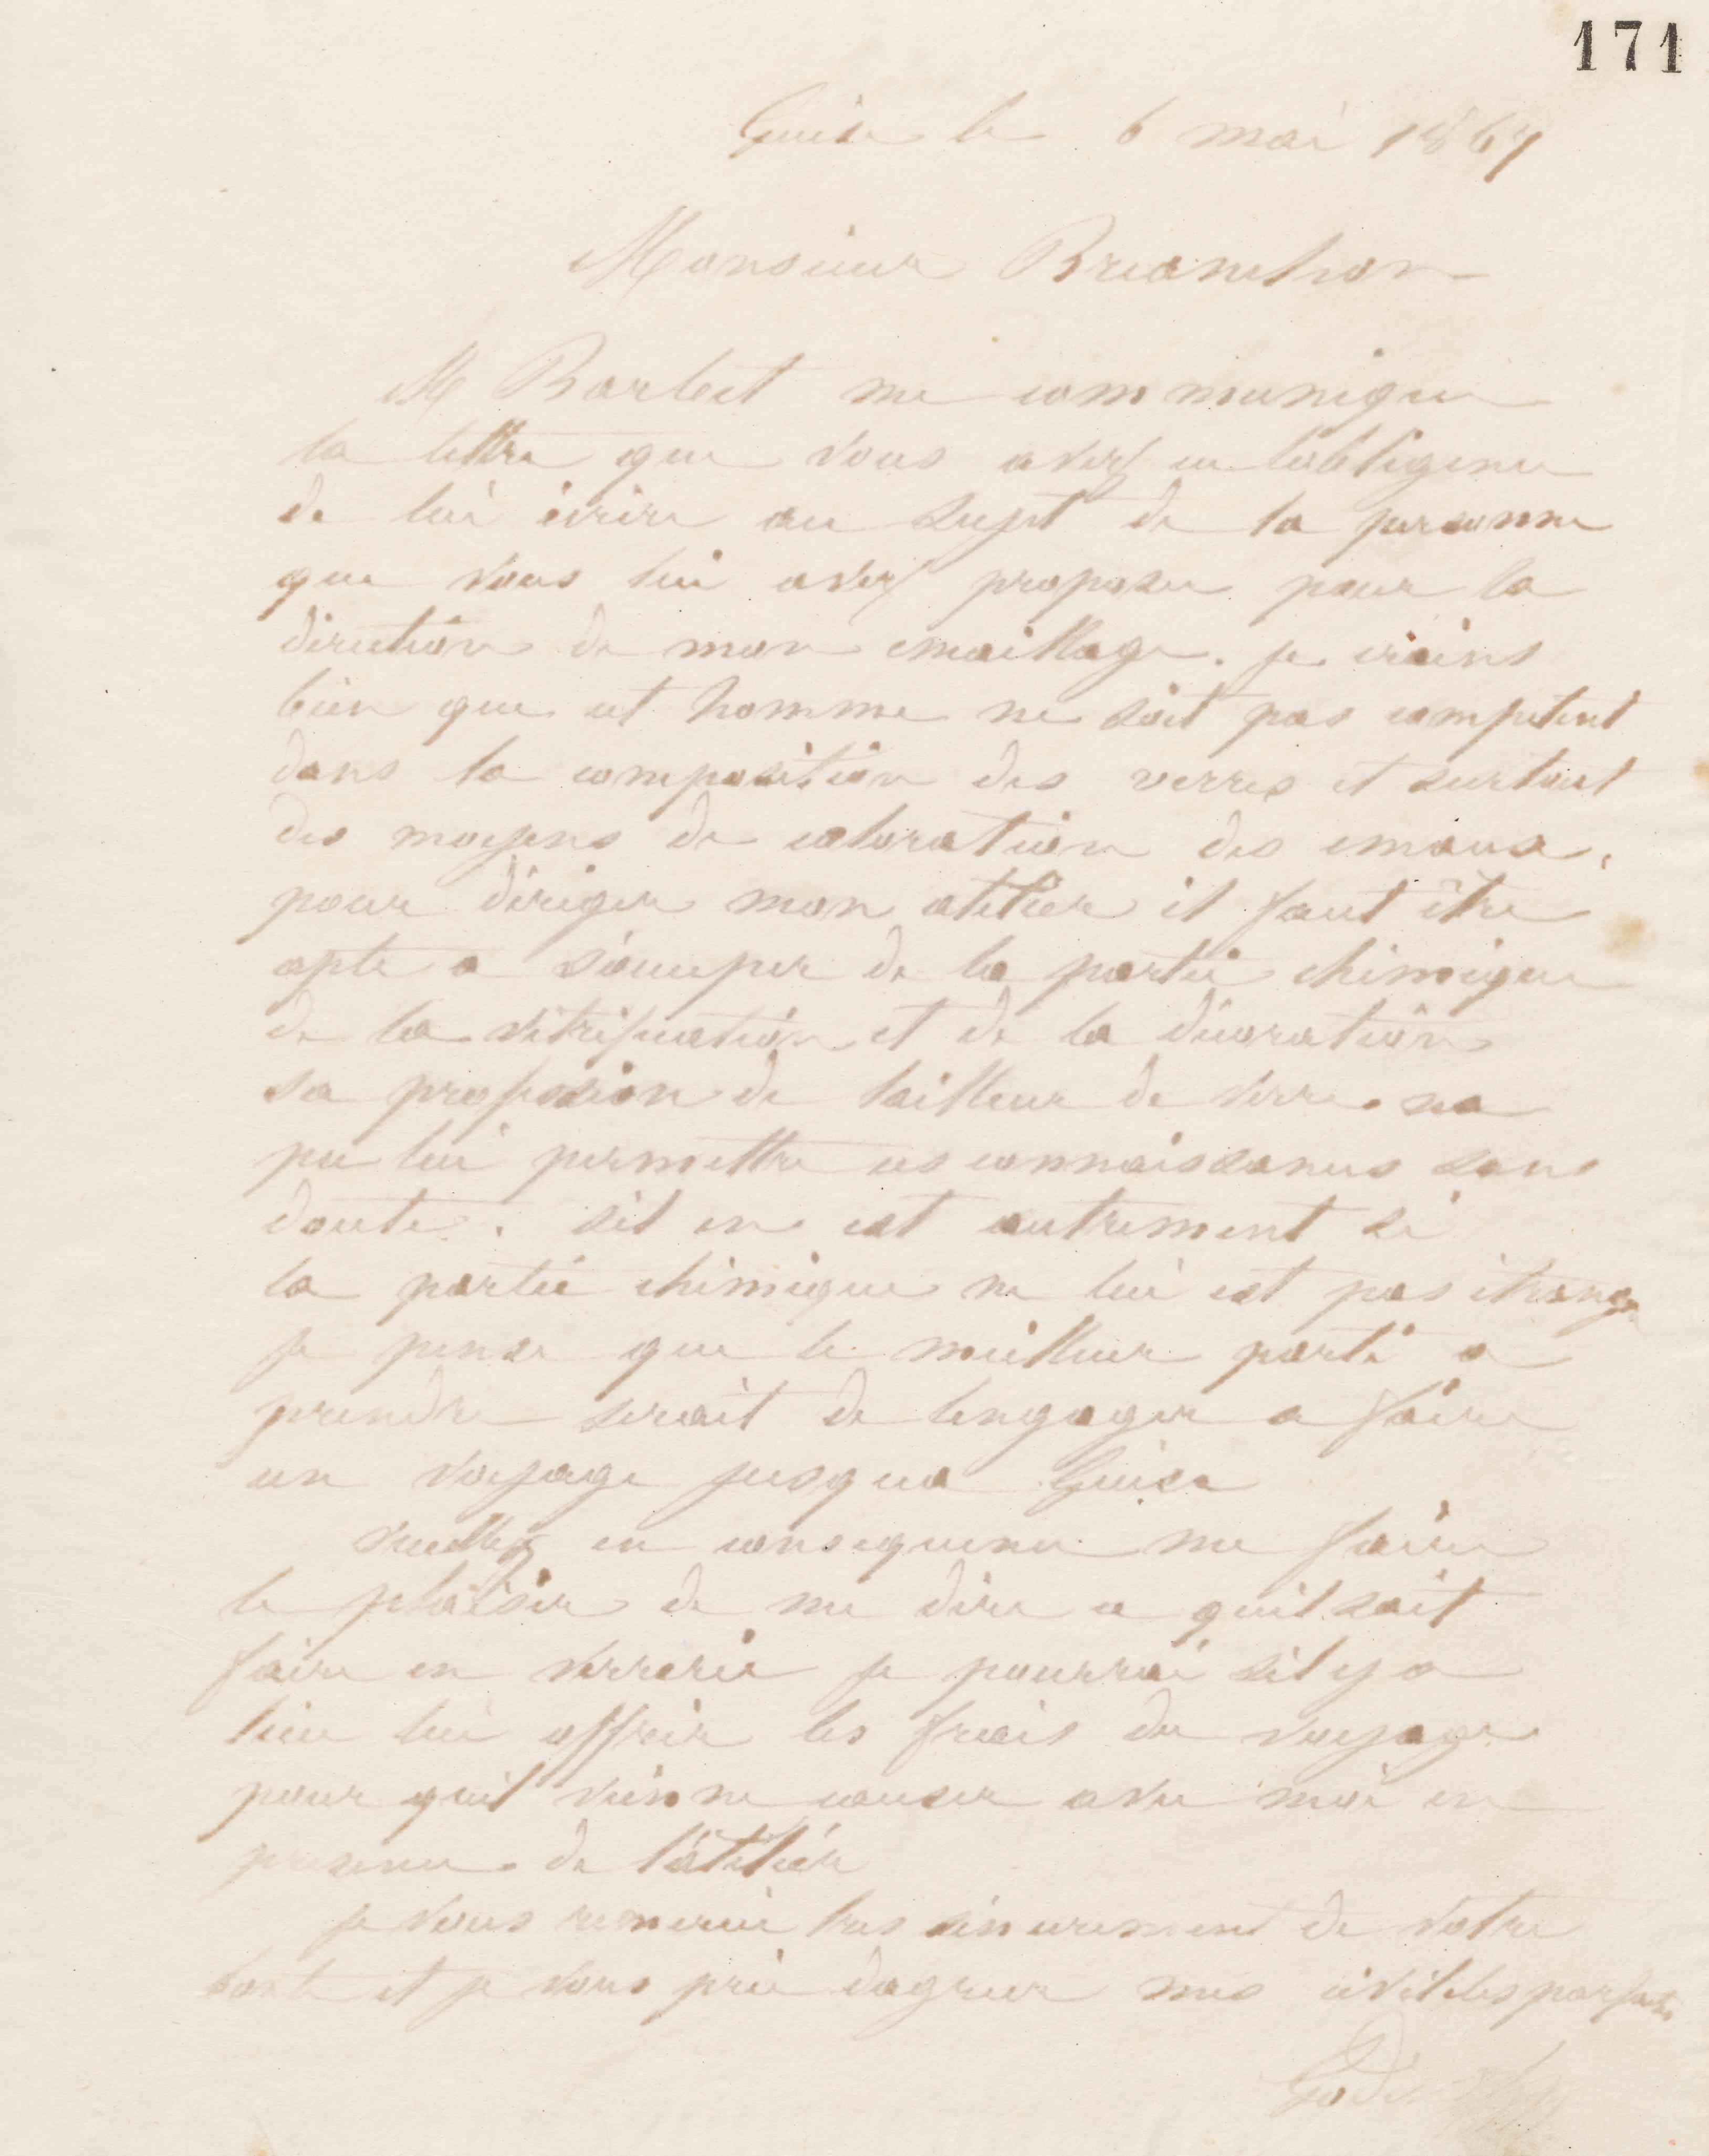 171
Guise le 6 mai 1867
Monsieur Brianchon
M Barbet me communique
la lettre que vous avez eu l'obligence
de lui écrire au sujet de la personne
que vous lui avez proposée pour la
direction de mon emaillage. je crains
bien que cet homme ne soit pas compétent
dans la composition des verres et surtout
des moyens de coloration des emaux,
pour diriger mon atelier il faut être
apte a s'occuper de la partie chimique
de la vitrification et de la décoration
sa profession de tailleur de verre na
pu lui permettre ces connaissances sans
doute. sil en est autrement si
la partie chimique ne lui est pas étrangère
je pense que le meilleur parti a
prendre serait de lengager a faire
un voyage jusqua Guise
veuillez en consequence me faire
le plaisir de me dire ce quil sait
faire en verrerie je pourrai sil y a
lieu lui offrir les frais du voyage
pour quil vienne causer avec moi en
presence de l'atelier
je vous remercie tres sincerement de votre
bonté et je vous prie dagreer mes civilités parfaites
Godin